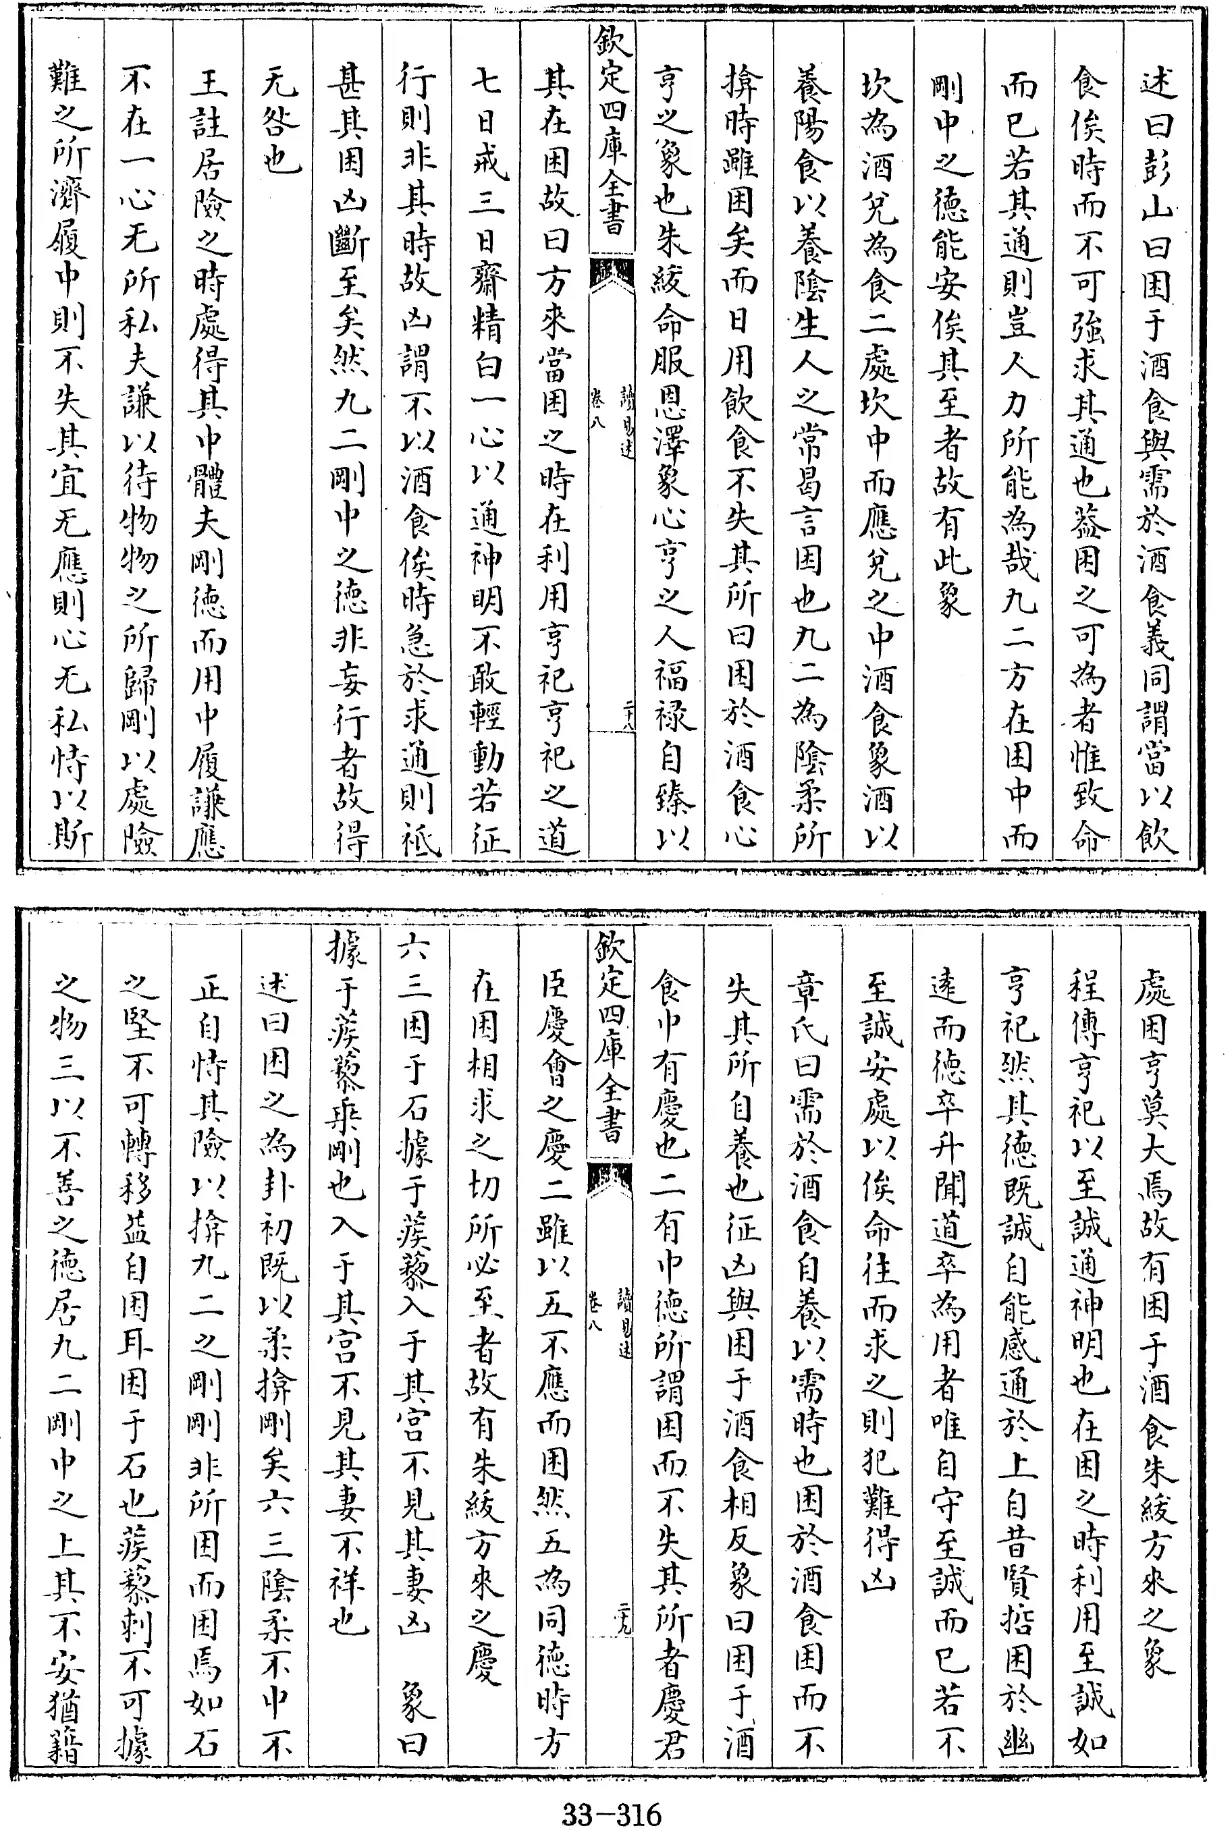 述曰彭山曰困于酒食與需於酒食義同謂當以飲
食俟時而不可強求其通也葢困之可為者惟致命
而已若其通則豈人力所能為哉九二方在困中而
剛中之徳能安俟其至者故有此象
坎為酒兌為食二處坎中而應兌之中酒食象酒以
養陽食以養陰生人之常曷言困也九二為陰柔所
揜時雖困矣而日用飲食不失其所曰困於酒食心
亨之象也朱紱命服恩澤象心亨之人福禄自臻以
欽定四庫全書
讀易述
卷八
二十八
其在困故曰方來當困之時在利用亨祀亨祀之道
七日戒三日齋精白一心以通神明不敢輕動若征
行則非其時故凶謂不以酒食俟時急於求通則祗
甚其困凶斷至矣然九二剛中之徳非妄行者故得
无咎也
王註居險之時處得其中體夫剛徳而用中履謙應
不在一心无所私夫謙以待物物之所歸剛以處險
難之所濟履中則不失其宜无應則心无私恃以斯
處困亨莫大焉故有困于酒食朱紱方來之象
程傳亨祀以至誠通神明也在困之時利用至誠如
亨祀然其徳既誠自能感通於上自昔賢哲困於幽
逺而徳卒升聞道卒為用者唯自守至誠而已若不
至誠安處以俟命往而求之則犯難得凶
章氏曰需於酒食自養以需時也困於酒食困而不
失其所自養也征凶與困于酒食相反象曰困于酒
食中有慶也二有中徳所謂困而不失其所者慶君
欽定四庫全書
讀易述
卷八
二十九
臣慶會之慶二雖以五不應而困然五為同徳時方
在困相求之切所必至者故有朱紱方來之慶
六三困于石據于蒺藜入于其宫不見其妻凶　象曰
據于蒺藜乘剛也入于其宫不見其妻不祥也
述曰困之為卦初既以柔揜剛矣六三陰柔不中不
正自恃其險以揜九二之剛剛非所困而困焉如石
之堅不可轉移益自困耳困于石也蒺藜刺不可據
之物三以不善之徳居九二剛中之上其不安猶籍
33-316